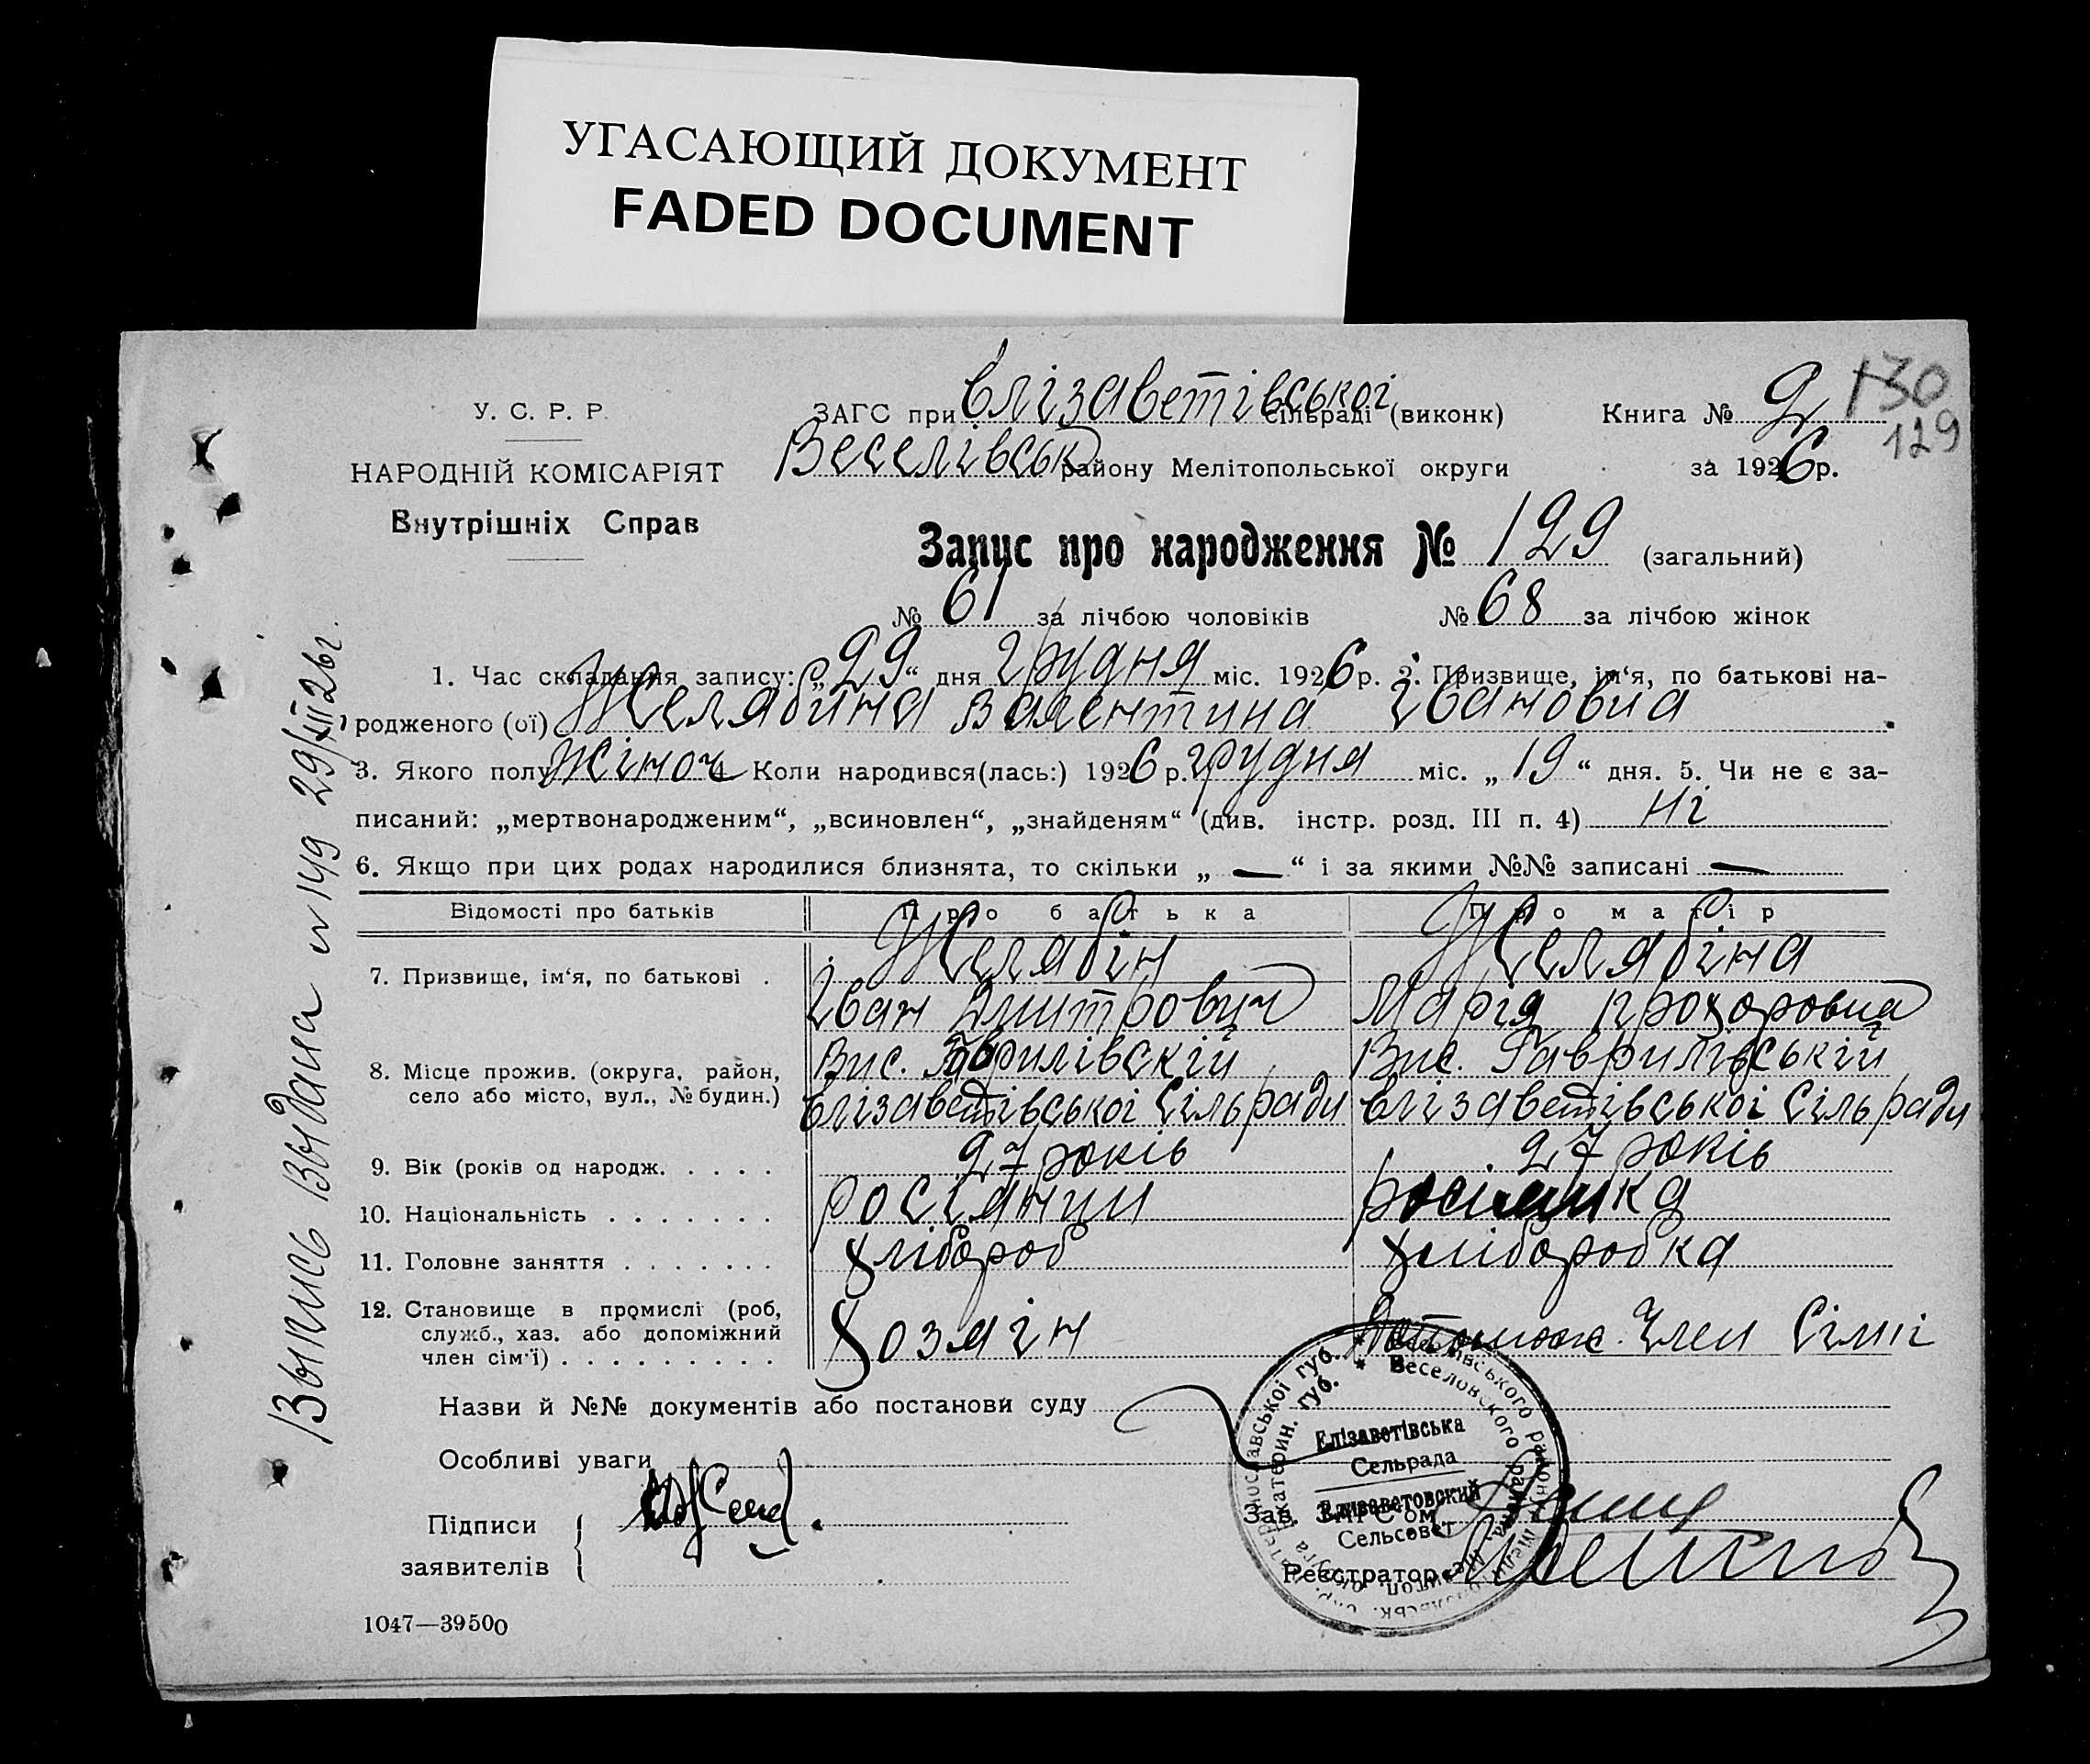 УГАСАЮЩИЙ ДОКУМЕНТ
FADED DOCUMENT
У. С. Р. Р.
НАРОДНІЙ КОМІСАРІЯТ
Внутрішніх Справ
ЗАГС при Єлізаветівської сільраді (виконк)
Веселівськ району Мелітопольської округи
Книга № 2
130
129
за 1926 р.
Запис про народження № 129 (загальний)
№ 61 за лічбою чоловіків № 68 за лічбою жінок
1. Час складання запису: „29“ дня грудня міс. 1926 р. 2. Призвище, ім‘я, по батькові на-
родженого (ої) Желябина Валентина Івановна
3. Якого полу жіноч 4. Коли народився(лась:) 1926 р. грудня міс. „19“ дня. 5. Чи не є за-
писаний: „мертвонародженим“, „всиновлен“, „знайденям“ (див. інстр. розд. III п. 4) ні
6. Якщо при цих родах народилися близнята, то скільки „—“ і за якими №№ записані —
Відомості про батьків Про батька Про матір
7. Призвище, ім‘я, по батькові . Желябін Желябіна
Іван Дмитрович Марія Прохоровна
8. Місце прожив. (округа, район, Вис. Гаврилівскій Вис. Гаврилівській
село або місто, вул., № будин.) Єлізаветівської Сільради Єлізаветівської Сільради
9. Вік (років од народж. . . . . 27 років 27 років
10. Національність . . . . . . . росіянин росіянка
11. Головне заняття . . . . . . . хлібороб хліборобка
12. Становище в промислі (роб,
служб., хаз. або допоміжний Хозяін Допомож. Член Сімії
член сім‘ї) . . . . . . . . . .
Назви й №№ документів або постанови суду
Особливі уваги
Підписи
заявителів
Зав. ЗАГС‘ом
Реєстратор
Елізаветівська
Сельрада
Елизаветовский
Сельсовет
1047—39500
Выпись выдана № 149 29/XII 26г.